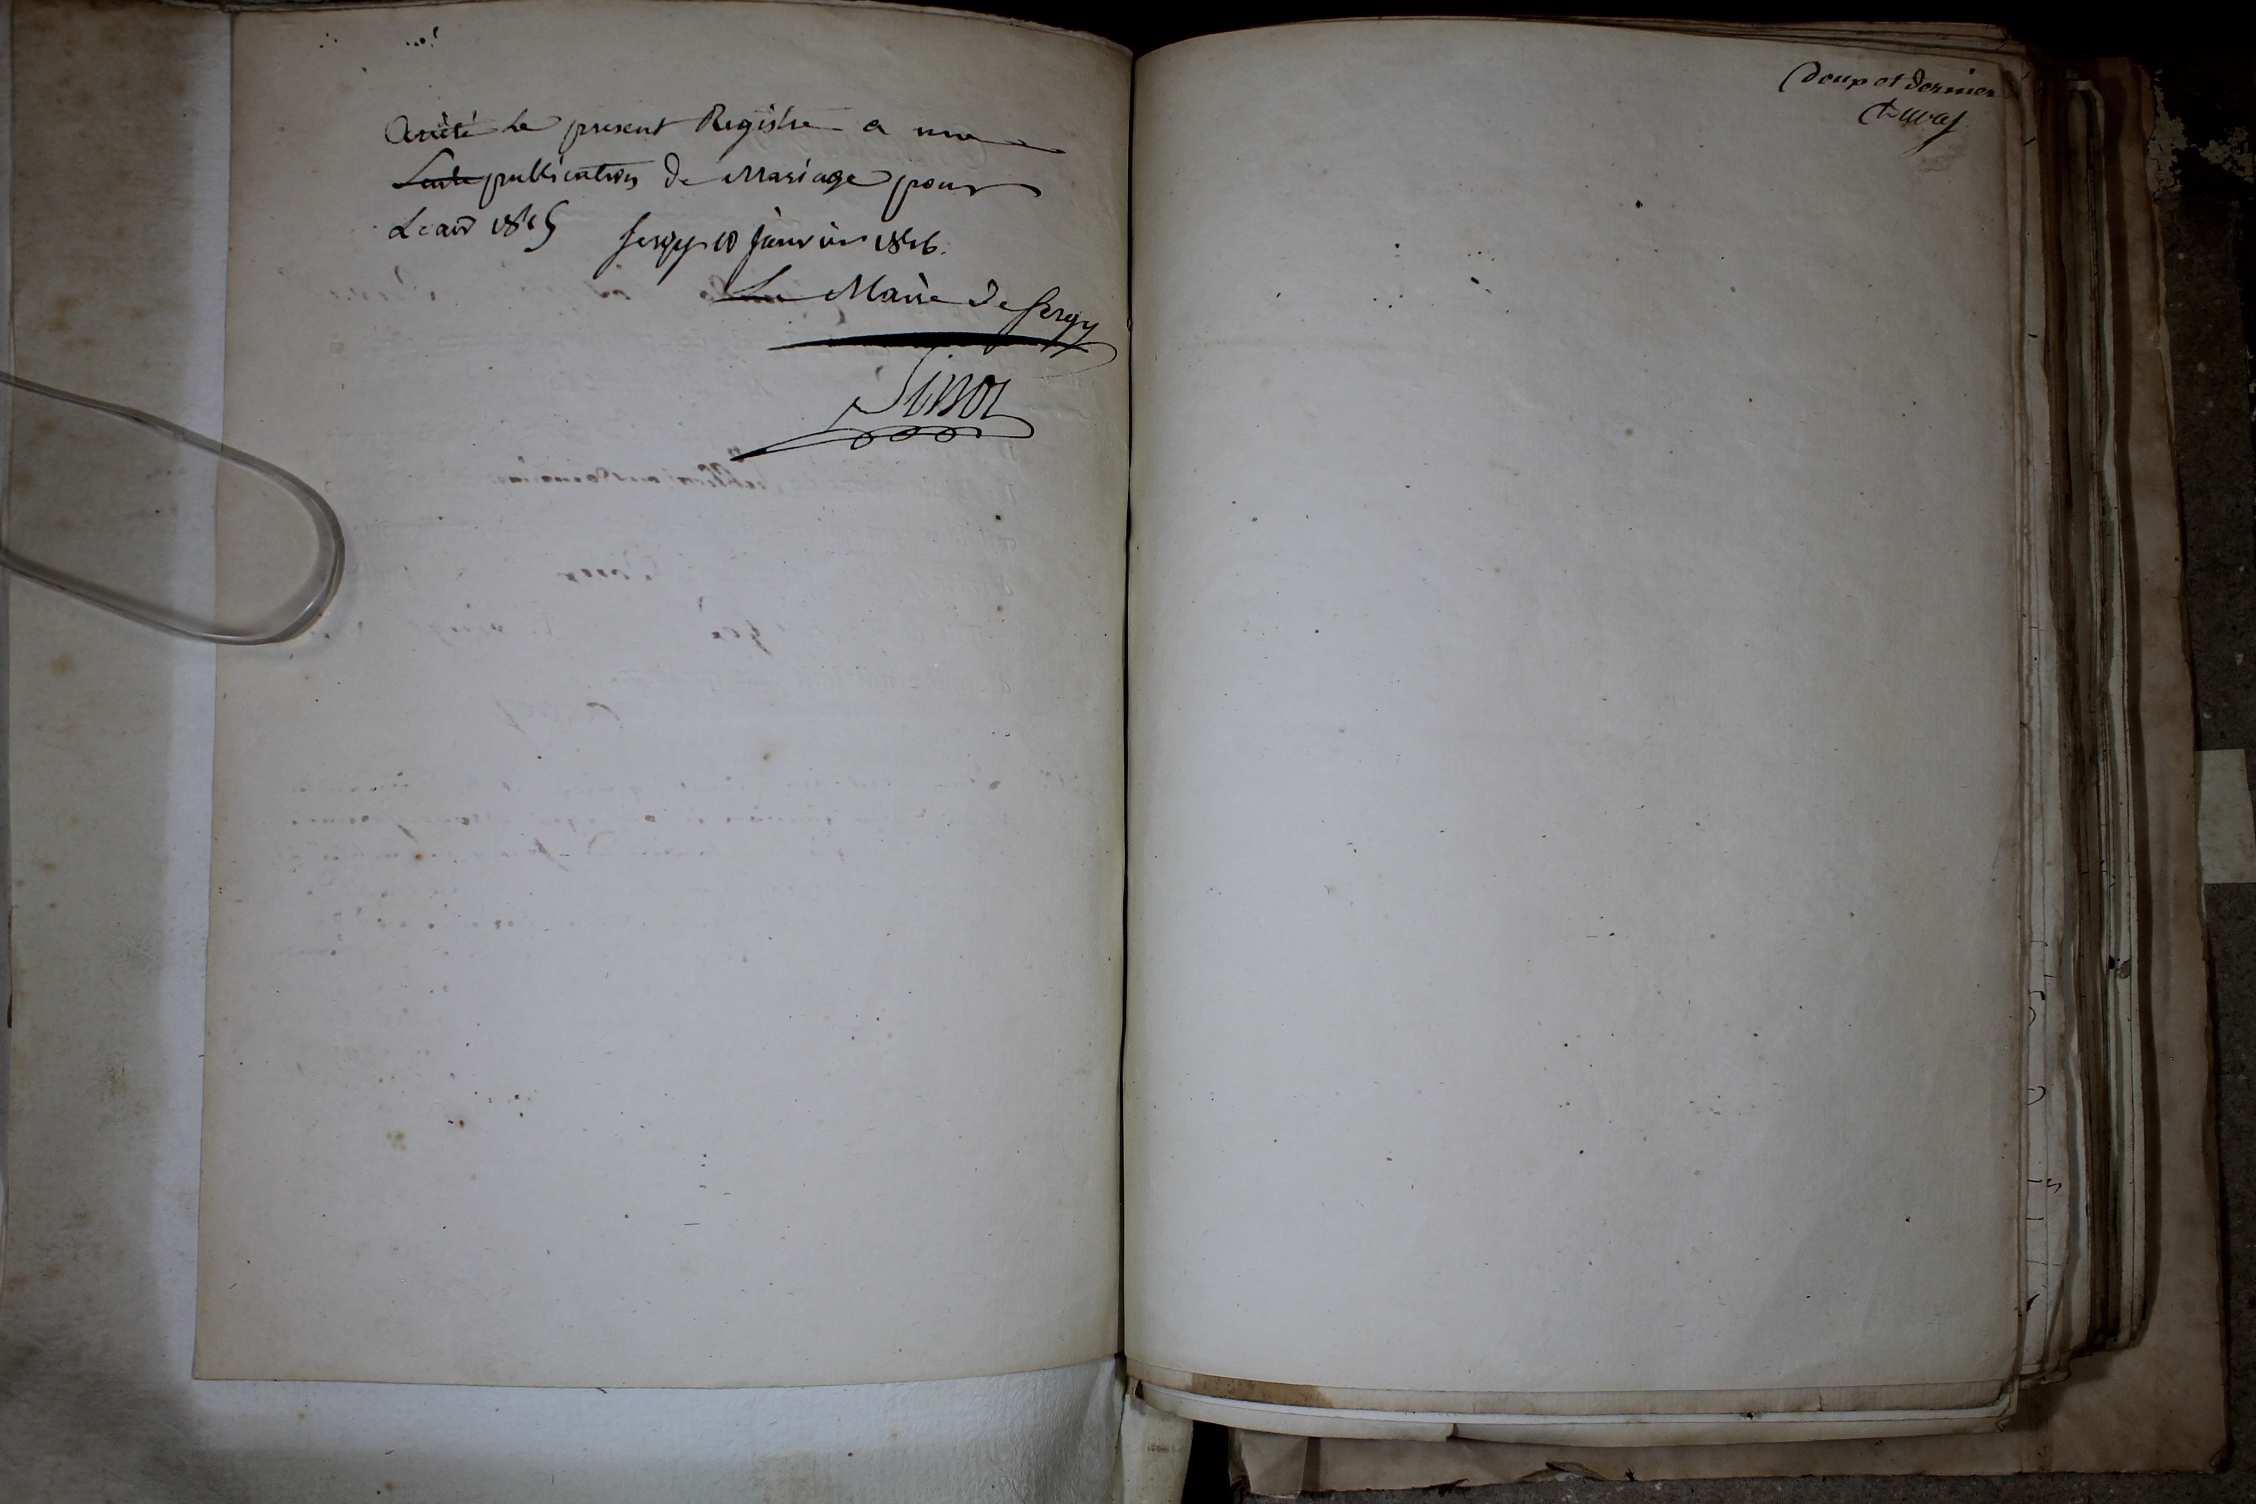 Arrêté le present Registre a une
Seule publication de Mariage pour
L'an 1815 Sergy 10 Janvier 1816.
Le Maire de Sergy
deux et dernier